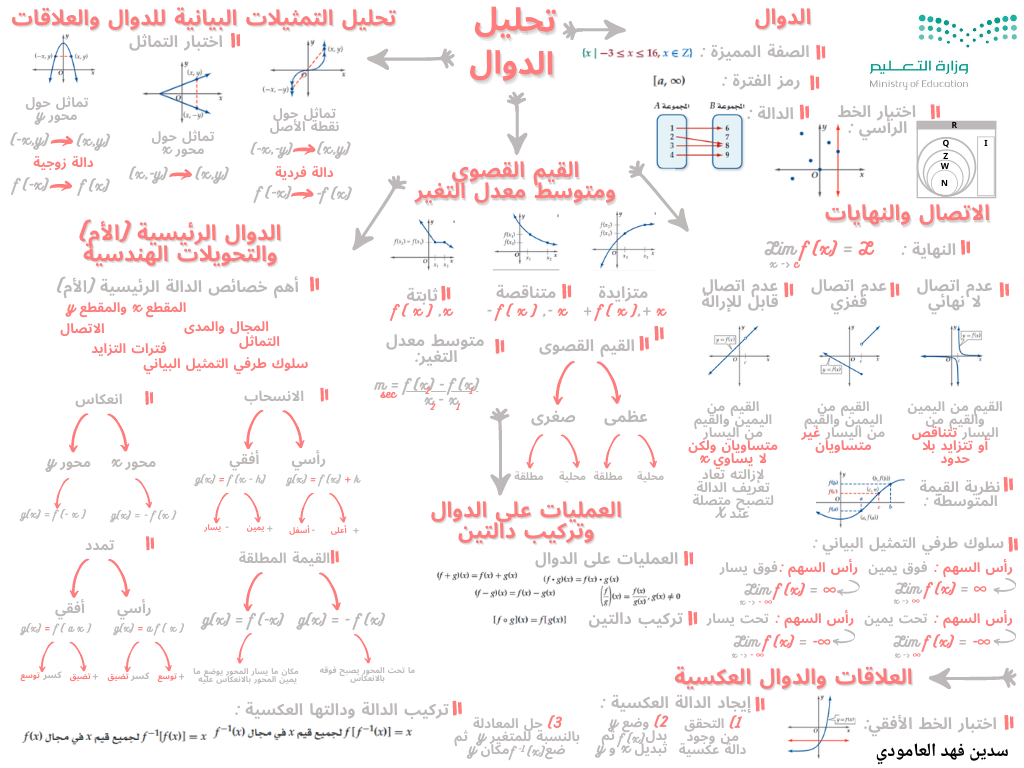 تحليل
الدوال
وزارة التعليم
Ministry of Education
الدوال
الصفة المميزة :
{x | −3 ≤ x ≤ 16, x ∈ Z}
رمز الفترة :
[a, ∞)
الدالة :
المجموعة A
المجموعة B
1
2
3
4
6
7
8
9
اختبار الخط
الرأسي :
R
Q
Z
W
N
I
الاتصال والنهايات
النهاية :
Lim f(x) = L
x -> c
عدم اتصال
لا نهائي
عدم اتصال
قفزي
عدم اتصال
قابل للإزالة
y = f(x)
القيم من اليمين
والقيم من
اليسار تتناقص
أو تتزايد بلا
حدود
القيم من
اليمين والقيم
من اليسار غير
متساويان
القيم من
اليمين والقيم
من اليسار
متساويان ولكن
لا يساوي x
لازالته تعاد
تعريف الدالة
لتصبح متصلة
عند x
نظرية القيمة
المتوسطة :
f(b)
f(c)
f(a)
(b, f(b))
(c, n)
(a, f(a))
سلوك طرفي التمثيل البياني :
رأس السهم : فوق يمين
Lim f(x) = ∞
x -> ∞
رأس السهم : فوق يسار
Lim f(x) = ∞
x -> -∞
رأس السهم : تحت يمين
Lim f(x) = -∞
x -> ∞
رأس السهم : تحت يسار
Lim f(x) = -∞
x -> -∞
القيم القصوى
ومتوسط معدل التغير
متزايدة
+ f ( x ) ,+ x
متناقصة
- f ( x ) ,- x
ثابتة
f ( x ) ,x
القيم القصوى
عظمى
صغرى
محلية
مطلقة
محلية
مطلقة
متوسط معدل
التغير:
m sec = f(x2) - f(x1)
x2 - x1
العمليات على الدوال
وتركيب دالتين
العمليات على الدوال
(f + g)(x) = f(x) + g(x)
(f • g)(x) = f(x) • g(x)
(f − g)(x) = f(x) − g(x)
(f/g)(x) = f(x)/g(x), g(x) ≠ 0
تركيب دالتين
[f ∘ g](x) = f[g(x)]
العلاقات والدوال العكسية
اختبار الخط الأفقي:
y = f(x)
إيجاد الدالة العكسية :
1) التحقق
من وجود
دالة عكسية
2) وضع y
بدل f(x) ثم
تبديل x و y
3) حل المعادلة
بالنسبة للمتغير y ثم
ضع f⁻¹(x) مكان y
تركيب الدالة ودالتها العكسية :
f [f⁻¹(x)] = x لجميع قيم x في مجال f⁻¹(x)
f⁻¹[f(x)] = x لجميع قيم x في مجال f(x)
سدين فهد العامودي
تحليل التمثيلات البيانية للدوال والعلاقات
اختبار التماثل
(−x, y)
(x, y)
(x, y)
(x, −y)
(x, y)
(−x, −y)
تماثل حول
محور y
(-x,y) (x,y)
دالة زوجية
f (-x) f (x)
تماثل حول
محور x
(x,-y) (x,y)
تماثل حول
نقطة الأصل
(-x,-y) (x,y)
دالة فردية
f (-x) -f (x)
الدوال الرئيسية (الأم)
والتحويلات الهندسية
أهم خصائص الدالة الرئيسية (الأم)
المقطع x والمقطع y
المجال والمدى
الاتصال
التماثل
فترات التزايد
سلوك طرفي التمثيل البياني
الانسحاب
رأسي
g(x) = f (x) + k
+ أعلى
- أسفل
أفقي
g(x) = f (x - h)
+ يمين
- يسار
انعكاس
محور x
g(x) = - f (x )
محور y
g(x) = f (- x )
تمدد
رأسي
g(x) = a f ( x )
+ توسع
كسر تضيق
أفقي
g(x) = f ( a x )
+ تضيق
كسر توسع
القيمة المطلقة
g(x) = - f (x)
ما تحت المحور يصبح فوقه
بالانعكاس
g(x) = f (-x)
مكان ما يسار المحور يوضع ما
يمين المحور بالانعكاس عليه